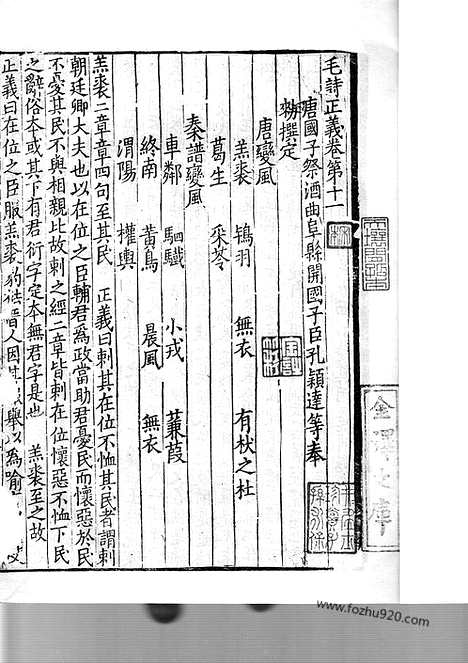 毛詩正義卷第十一
唐國子祭酒曲阜縣開國子臣孔穎達等奉
勑撰定
唐變風
羔裘 鴇羽 無衣 有杕之杜
葛生 采苓
秦譜變風
車鄰 駟驖 小戎 蒹葭
終南 黃鳥 晨風 無衣
渭陽 權輿
羔裘二章章四句至其民 正義曰刺其在位不恤其民者謂刺
朝廷卿大夫也以在位之臣輔君為政當助君憂民而懷惡於民
不憂其民不與相親比故刺之經二章皆刺在位懷惡不恤下民
之辭俗本或其下有君衍字定本無君字是也 羔裘至之故
正義曰在位之臣服羔裘豹袪晉人因其舉以為喻
金澤文庫
www.fozhu920.com